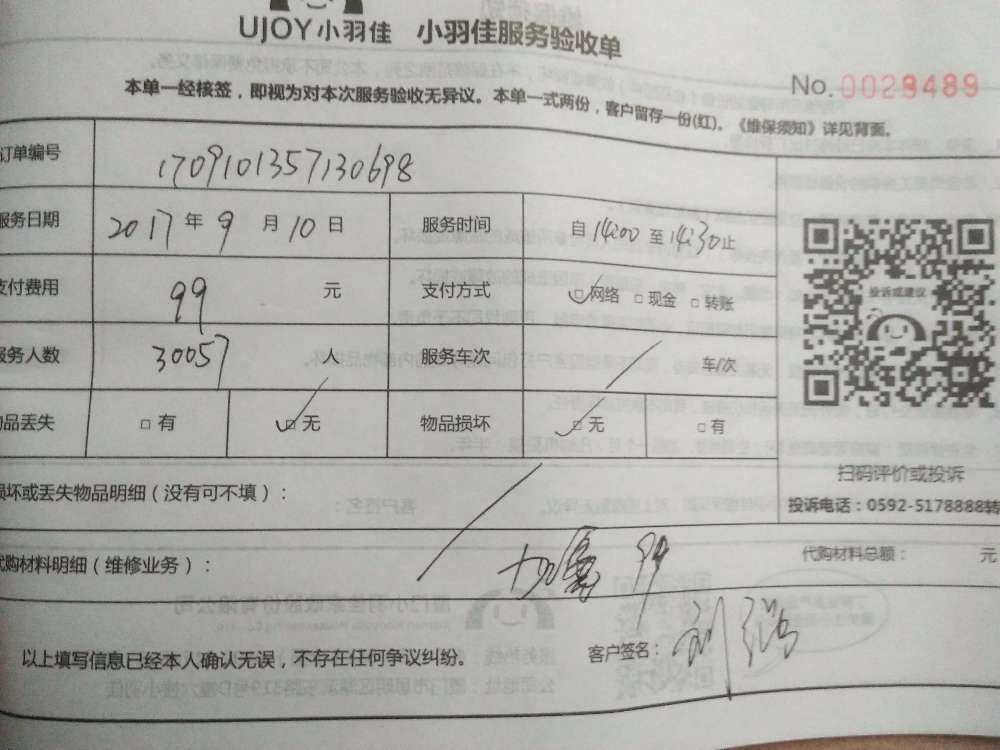 UJOY小羽佳 小羽佳服务验收单
No. 0029489
本单一经核签，即视为对本次服务验收无异议。本单一式两份，客户留存一份(红)。《维保须知》详见背面。
订单编号 1709101357130698
服务日期 2017 年 9 月 10 日 服务时间 自 14:00 至 14:30 止
支付费用 99 元 支付方式 □网络 □现金 □转账
服务人数 30057 人 服务车次 车/次
物品丢失 □有 □无 物品损坏 □无 □有
投诉或建议
扫码评价或投诉
投诉电话：0592-5178888转
损坏或丢失物品明细（没有可不填）：
代购材料明细（维修业务）： 99 代购材料总额： 元
以上填写信息已经本人确认无误，不存在任何争议纠纷。 客户签名：刘